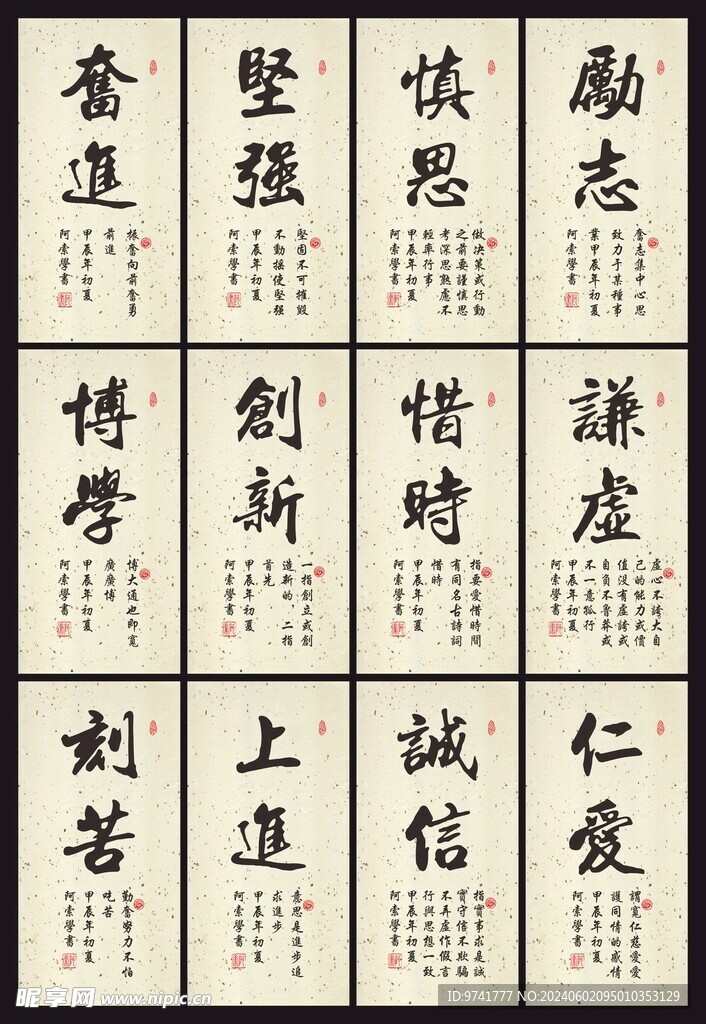 勵志
奮志集中心思
致力于某種事
業甲辰年初夏
阿索學書
慎思
做决策或行動
之前要謹慎思
考深思熟慮不
輕率行事
甲辰年初夏
阿索學書
堅强
堅固不可摧毀
不動摇使堅强
甲辰年初夏
阿索學書
奮進
振奮向前奮勇
前進
甲辰年初夏
阿索學書
謙虛
虛心不誇大自
己的能力或價
值没有虛誇或
自負不魯莽或
不一意孤行
阿索學書
惜時
指要愛惜時間
有同名古詩詞
惜時
甲辰年初夏
阿索學書
創新
一指創立或創
造新的，二指
首先
甲辰年初夏
阿索學書
博學
博大通也即寬
廣廣博
甲辰年初夏
阿索學書
仁愛
謂寬仁慈愛愛
護同情的感情
甲辰年初夏
阿索學書
誠信
指實事求是誠
實守信不欺騙
不弄虛作假言
行與思想一致
甲辰年初夏
阿索學書
上進
意思是進步追
求進步
甲辰年初夏
阿索學書
刻苦
勤奮努力不怕
吃苦
甲辰年初夏
阿索學書
昵享网 www.nipic.cn
ID:9741777 NO:20240602095010353129